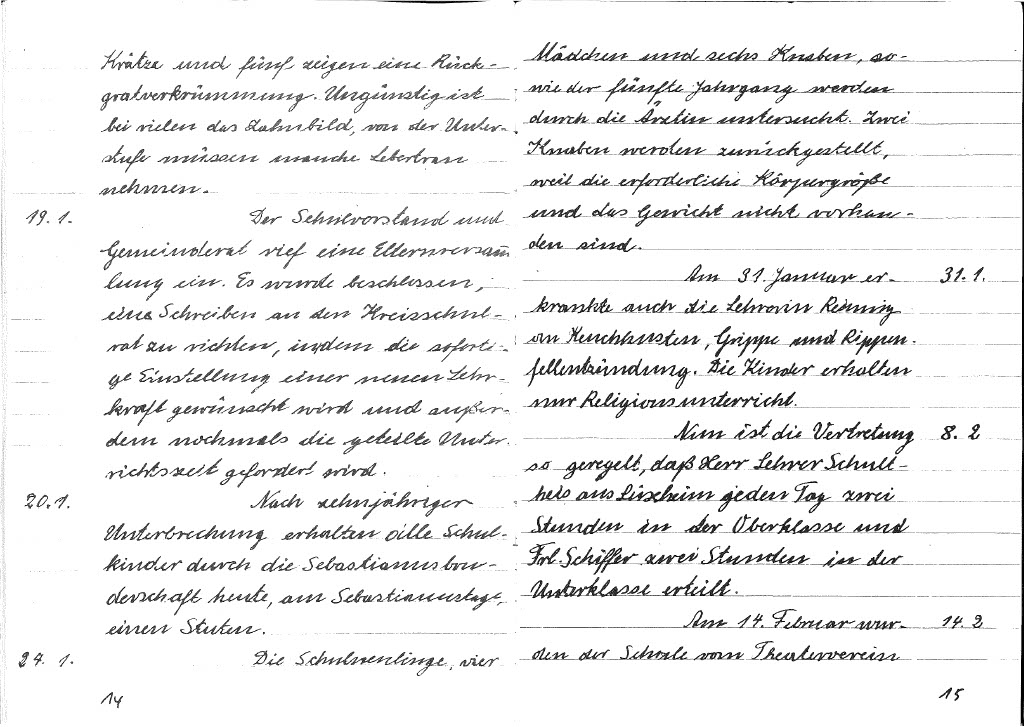 Krätze und fünf zeigen eine Rück-
gratverkrümmung. Ungünstig ist
bei vielen das Zahnbild, von der Unter-
stufe müssen manche Lebertran
nehmen.
19.1. Der Schulvorstand und
Gemeinderat rief eine Elternversamm
lung ein. Es wurde beschlossen,
eine Schreiben an den Kreisschul-
rat zu richten, indem die soforti-
ge Einstellung einer neuen Lehr-
kraft gewünscht wird und außer-
dem nochmals die geteilte Unter-
richtszeit gefordert wird.
20.1. Nach zehnjähriger
Unterbrechung erhalten alle Schul-
kinder durch die Sebastianusbru-
derschaft heute, am Sebastianustage,
einen Stuten.
24. 1. Die Schulneulinge, vier
14
Mädchen und sechs Knaben, so-
wie der fünfte Jahrgang werden
durch die Ärztin untersucht. Zwei
Knaben werden zurückgestellt,
weil die erforderliche Körpergröße
und das Gewicht nicht vorhan-
den sind.
Am 31. Januar er- 31.1.
krankte auch die Lehrerin
an Keuchhusten, Grippe und Rippen-
fellentzündung. Die Kinder erhalten
nur Religionsunterricht.
Nun ist die Vertretung 8. 2
so geregelt, daß Herr Lehrer Schult-
heis aus jeden Tag zwei
Stunden in der Oberklasse und
Frl. Schiffer zwei Stunden in der
Unterklasse erteilt.
Am 14. Februar wur- 14. 2
den der Schule vom Theaterverein
15